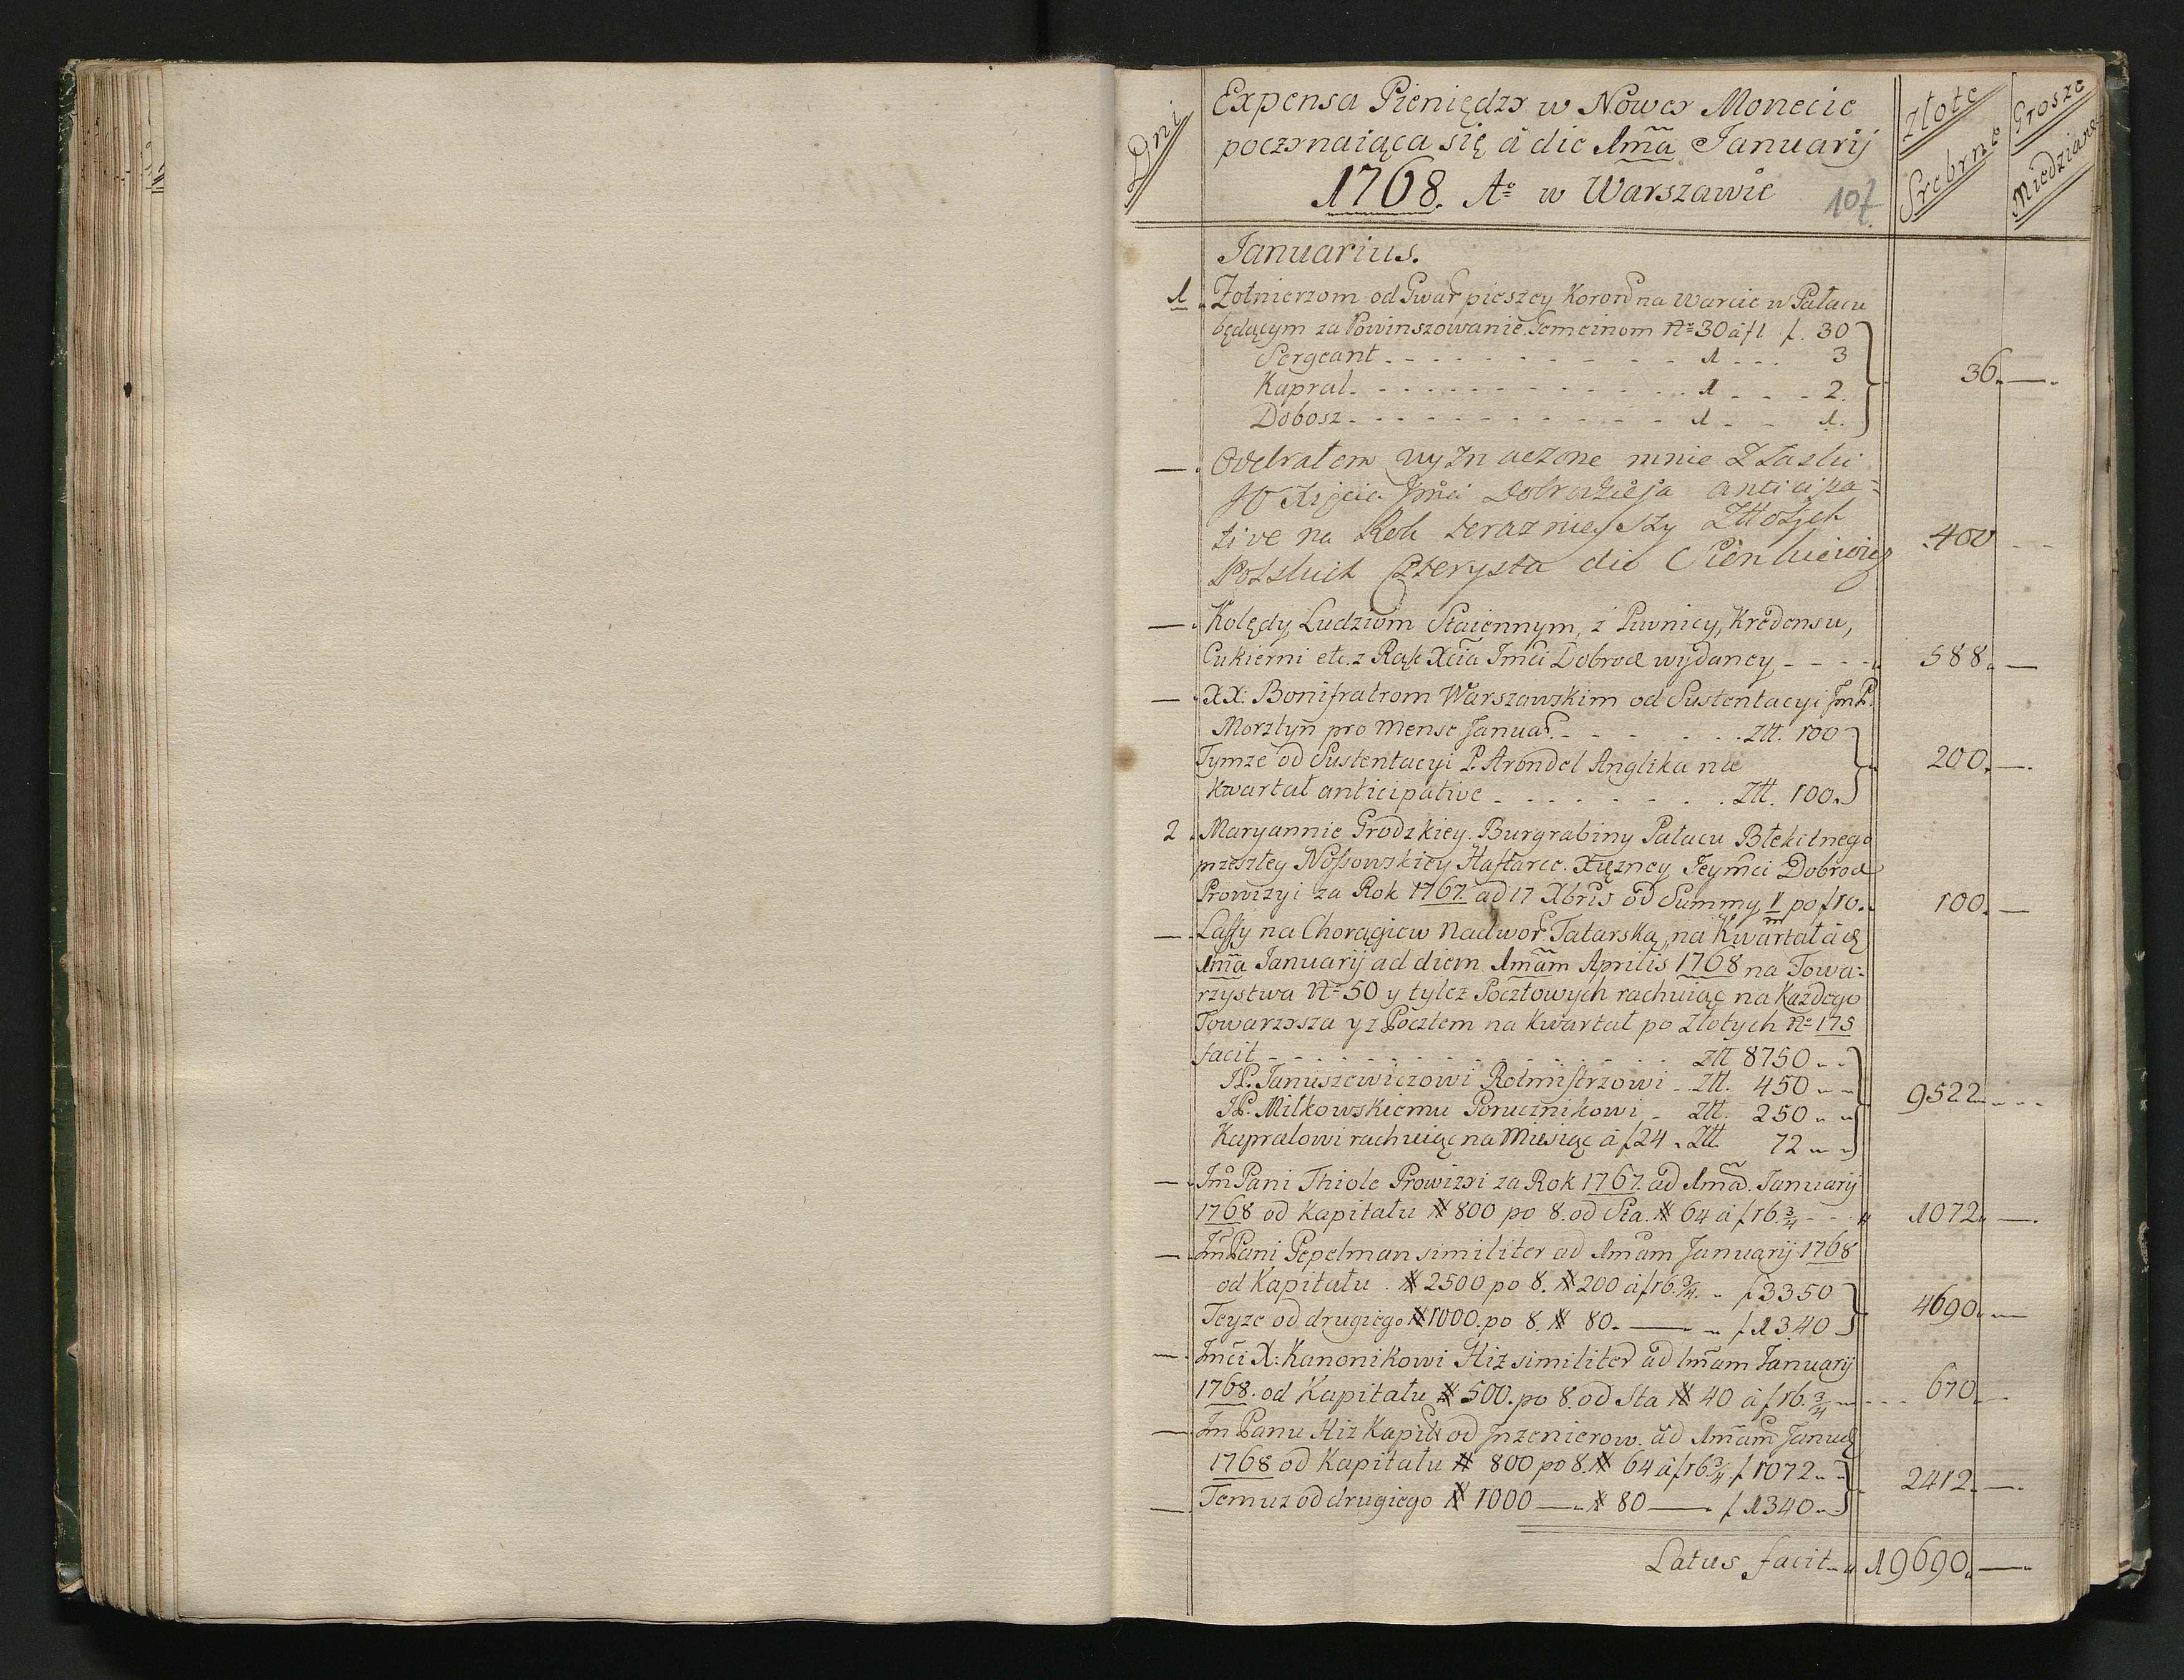 Dni
Expensa Pieniędzy w Nowey Monecie
poczynaiąca się à die 1ma Januarij
1768. Ao w Warszawie
107.
Złote Srebrne
Grosze Miedziane
Januarius.
1. Żołnierzom od Gwar pieszey Koron na Warcie w Pałacu
będącym za Powinszowanie. Gemeinom No 30 à f1 f. 30
Sergeant - - - 1 - - 3
Kapral. - - - 1 - - - 2.
Dobosz - - - 1 - - 1.
36. —
— Odebrałem wyznaczone mnie z Łaski
JO Xięcia Jmci Dobrodzieja anticipa=
tive na Rok teraznieyszy Złłotych
Polskich Czterysta die Sienkiewicz
400 - -
— Kolędy, Ludziom Staiennym, z Piwnicy, Kredensu,
Cukierni etc. z Rąk Xcia Jmci Dobrod wydaney - - - -
588. —
— XX: Bonifratrom Warszawskim od Sustentacyi Jm P.
Morztyn pro Mense Januar. - - - Złł. 100
Tymze od Sustentacyi P. Arondel Anglika na
Kwartał anticipative - - - Złł. 100.
200. —
2. Maryannie Grodzkiey. Burgrabiny Pałacu Błekitnego
przeszłey Nossowskiey Haftarce. Xięzney Jeymci Dobrod
Prowizyi za Rok 1767. ad 17 Xbris od Summy 1/m po f 10.
100. —
— Laffy na Chorągiew Nadwor. Tatarską, na Kwartał à d
1ma Januarij ad diem 1mam Aprilis 1768 na Towa=
rzystwa No 50 y tylez Pocztowych rachuiąc na Kazdego
Towarzysza y z Pocztem na Kwartał po Złotych No 175
facit - - - Złł 8750
JP. Januszewiczowi Rotmistrzowi - Złł. 450
JP. Miłkowskiemu Porucznikowi - Złł. 250
Kapralowi rachuiąc na Miesiąc à f 24 . Złł. 72
9522. - - -
— Jm Pani Thiole Prowizyi za Rok 1767. ad 1ma. Januarij
1768 od Kapitału # 800 po 8. od Sta. # 64 à f 16. 3/4 - -
1072. —
— Jm Pani Pepelman similiter ad 1mam Januarij 1768
od Kapitału # 2500 po 8. # 200 à f 16. 3/4. f 3350
Teyze od drugiego # 1000. po 8. # 80. — f 1340
4690. —
— Jmci X: Kanonikowi Hiz similiter ad 1mam Januarij
1768. od Kapitału # 500. po 8. od Sta # 40 à f 16. 3/4 - - -
670. -
— Jm Panu Hiz Kapit od Jnzenierow. ad 1mam Januar
1768 od Kapitału # 800 po 8. # 64 à f 16 3/4 f 1072
— Temuz od drugiego # 1000 — # 80 — f 1340
2412. —
Latus facit 19690. —